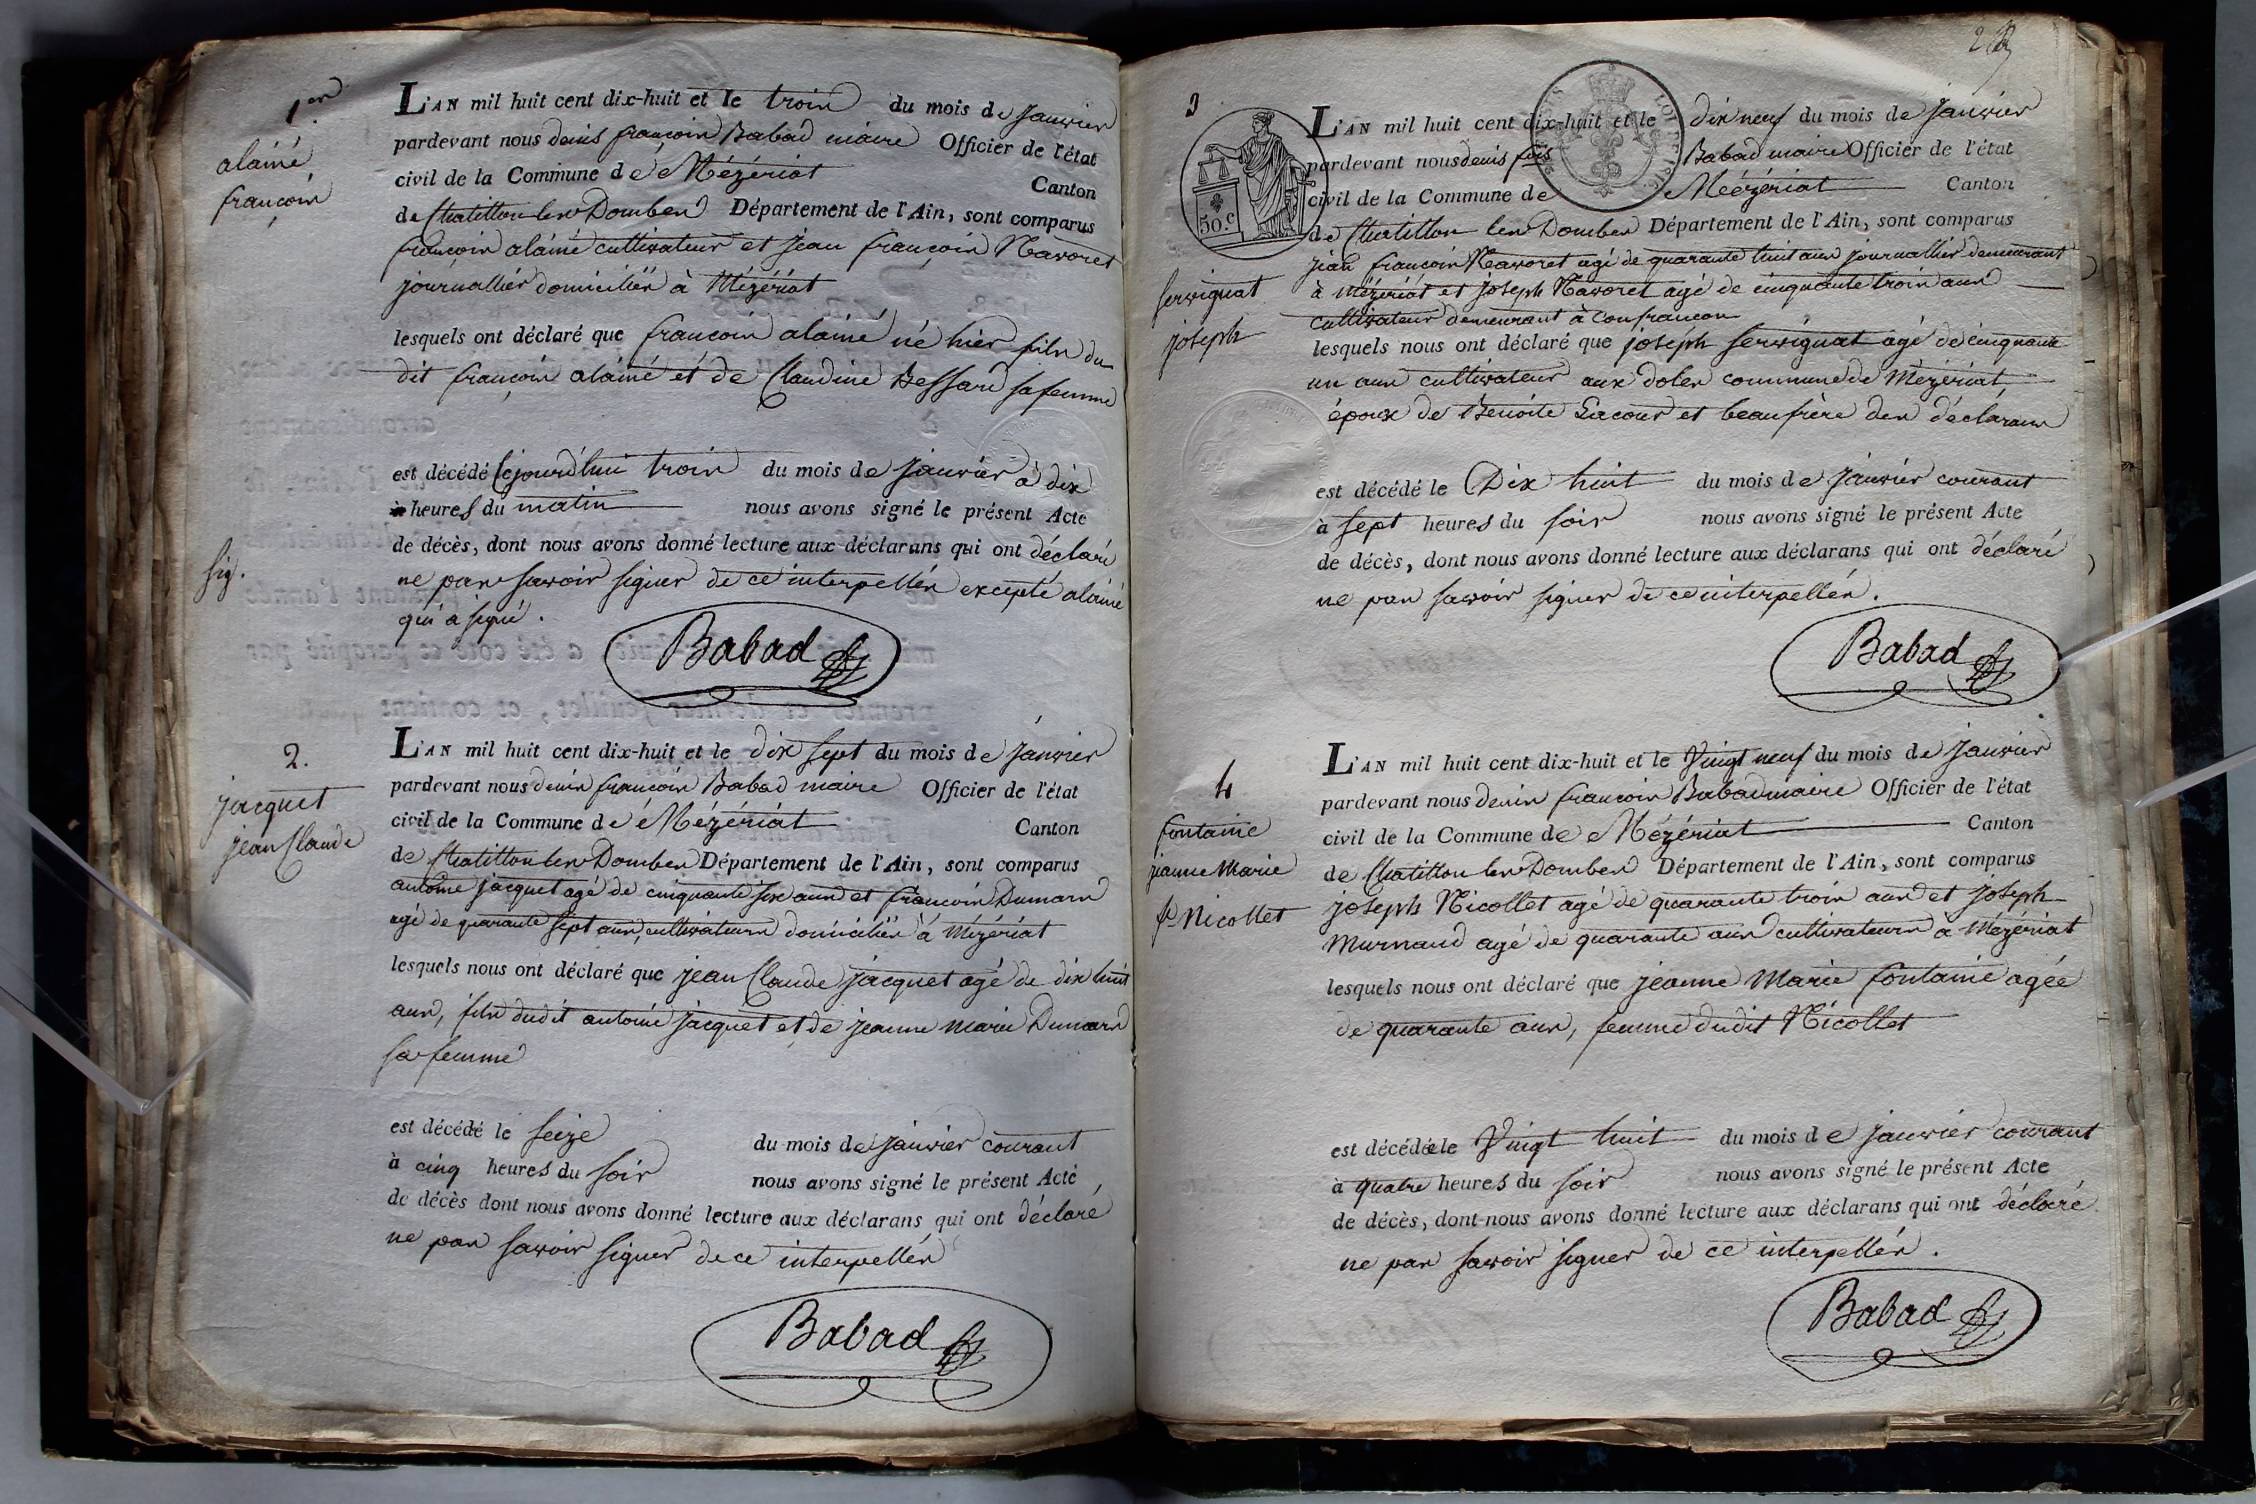 1er
alainé
françois
L'AN mil huit cent dix-huit et le trois du mois de Janvier
pardevant nous denis françois Babad maire Officier de l'état
civil de la Commune de Mézériat Canton
de Chatillon les Dombes Département de l'Ain, sont comparus
françois alainé cultivateur et jean françois Navoret
journallier domiciliés à Mézériat
lesquels ont déclaré que françois alainé né hier fils du
dit françois alainé et de Claudine Bessard sa femme
est décédé cejourd'hui trois du mois de janvier à dix
heures du matin nous avons signé le présent Acte
de décès, dont nous avons donné lecture aux déclarans qui ont déclaré
ne pas savoir signer de ce interpellés excepté alainé
qui a signé.
sig.
Babad
2.
jacquet
jean Claude
L'AN mil huit cent dix-huit et le dix sept du mois de janvier
pardevant nous denis françois Babad maire Officier de l'état
civil de la Commune de Mézériat Canton
de Chatillon les Dombes Département de l'Ain, sont comparus
antoine jacquet agé de cinquante six ans et françois Dumard
agé de quarante sept ans, cultivateurs domiciliés à Mézériat
lesquels nous ont déclaré que jean Claude jacquet agé de dix huit
ans, fils dudit antoine jacquet et de jeanne marie Dumard
sa femme
est décédé le seize du mois de janvier courant
à cinq heures du soir nous avons signé le présent Acte
de décès dont nous avons donné lecture aux déclarans qui ont déclaré
ne pas savoir signer de ce interpellés
Babad
3
50.c
LOI DE 1816
servignat
joseph
L'AN mil huit cent dix-huit et le dix neuf du mois de janvier
pardevant nous denis fois Babad maire Officier de l'état
civil de la Commune de Mézériat Canton
de Chatillon les Dombes Département de l'Ain, sont comparus
jean françois Navoret agé de quarante huit ans journallier demeurant
à Mézériat et joseph Navoret agé de cinquante trois ans
cultivateur demeurant à Confrançon
lesquels nous ont déclaré que joséph servignat agé de cinquante
un ans cultivateur aux doles commune de Mézériat,
époux de Benoite Lacour et beaufrère des déclarans
est décédé le Dix huit du mois de janvier courant
à sept heures du soir nous avons signé le présent Acte
de décès, dont nous avons donné lecture aux déclarans qui ont déclaré
ne pas savoir signer de ce interpellés.
Babad
4
fontaine
jeanne Marie
fe Nicollet
L'AN mil huit cent dix-huit et le Vingt neuf du mois de janvier
pardevant nous denis françois Babad maire Officier de l'état
civil de la Commune de Mézériat Canton
de Chatillon les Dombes Département de l'Ain, sont comparus
joseph Nicollet agé de quarante trois ans et joseph
Murnand agé de quarante ans cultivateurs à Mézériat
lesquels nous ont déclaré que jeanne Marie fontaine agée
de quarante ans, femme dudit Nicollet
est décédée le Vingt huit du mois de janvier courant
à quatre heures du soir nous avons signé le présent Acte
de décès, dont nous avons donné lecture aux déclarans qui ont déclaré
ne pas savoir signer de ce interpellés.
Babad